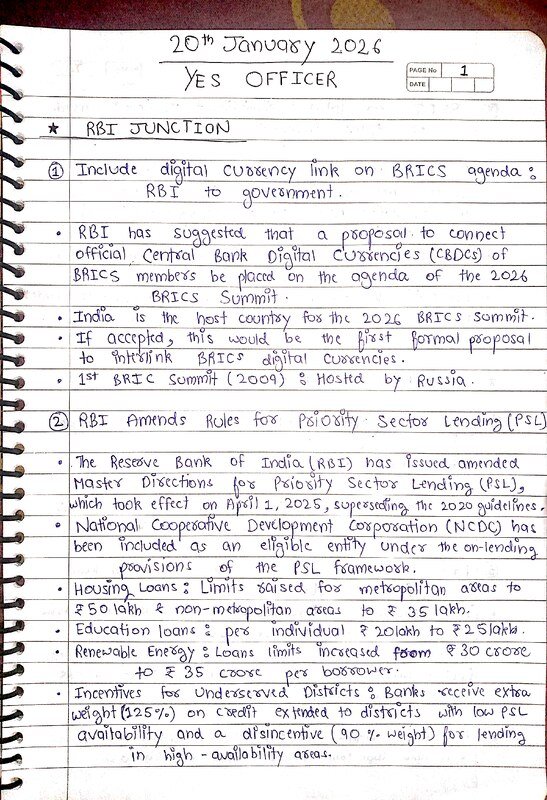 20th January 2026
YES OFFICER
PAGE No 1
DATE
★ RBI JUNCTION
① Include digital currency link on BRICS agenda :
RBI to government.
• RBI has suggested that a proposal to connect
official Central Bank Digital Currencies (CBDCs) of
BRICS members be placed on the agenda of the 2026
BRICS Summit.
• India is the host country for the 2026 BRICS summit.
• If accepted, this would be the first formal proposal
to interlink BRICS digital currencies.
• 1st BRIC Summit (2009) : Hosted by Russia.
② RBI Amends Rules for Priority Sector Lending (PSL)
• The Reserve Bank of India (RBI) has issued amended
Master Directions for Priority Sector Lending (PSL),
which took effect on April 1, 2025, superseding the 2020 guidelines.
• National Cooperative Development Corporation (NCDC) has
been included as an eligible entity under the on-lending
provisions of the PSL framework.
• Housing Loans : Limits raised for metropolitan areas to
₹ 50 lakh & non-metropolitan areas to ₹ 35 lakh.
• Education loans : per individual ₹ 20 lakh to ₹ 25 lakh.
• Renewable Energy : Loans limits increased from ₹ 30 crore
to ₹ 35 crore per borrower.
• Incentives for Underserved Districts : Banks receive extra
weight (125%) on credit extended to districts with low PSL
availability and a disincentive (90 % weight) for lending
in high - availability areas.